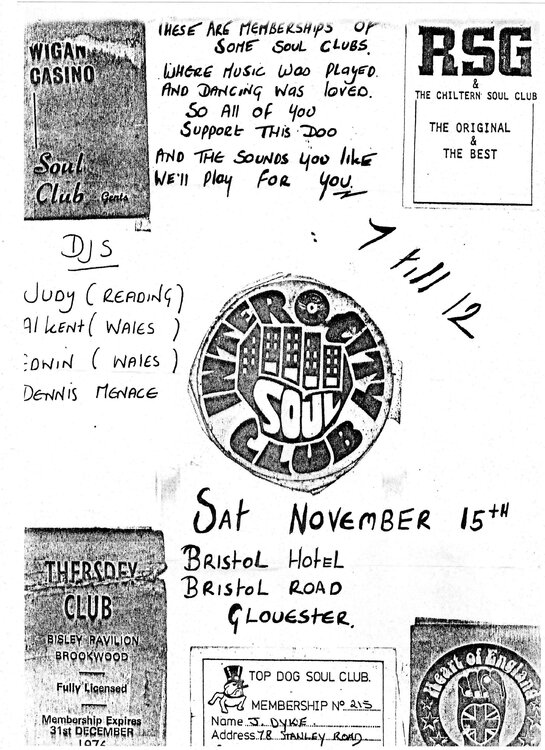 WIGAN
CASINO
Soul
Club Gents
THESE ARE MEMBERSHIPS OF
SOME SOUL CLUBS.
WHERE MUSIC WAS PLAYED.
AND DANCING WAS LOVED.
SO ALL OF YOU
SUPPORT THIS DOO
AND THE SOUNDS YOU LIKE
WE'LL PLAY FOR YOU.
RSG
&
THE CHILTERN SOUL CLUB
THE ORIGINAL
&
THE BEST
7 till 12
DJS
JUDY (READING)
Al KENT (WALES)
EDWIN (WALES)
DENNIS MENACE
INTER CITY
SOUL
CLUB
SAT NOVEMBER 15TH
BRISTOL HOTEL
BRISTOL ROAD
GLOUESTER.
THERSDEY
CLUB
BISLEY PAVILION
BROOKWOOD
Fully Licensed
Membership Expires
31st DECEMBER
1976
TOP DOG SOUL CLUB.
MEMBERSHIP Nº 213
Name J. DYKE
Address 78 STANLEY ROAD
Heart of England